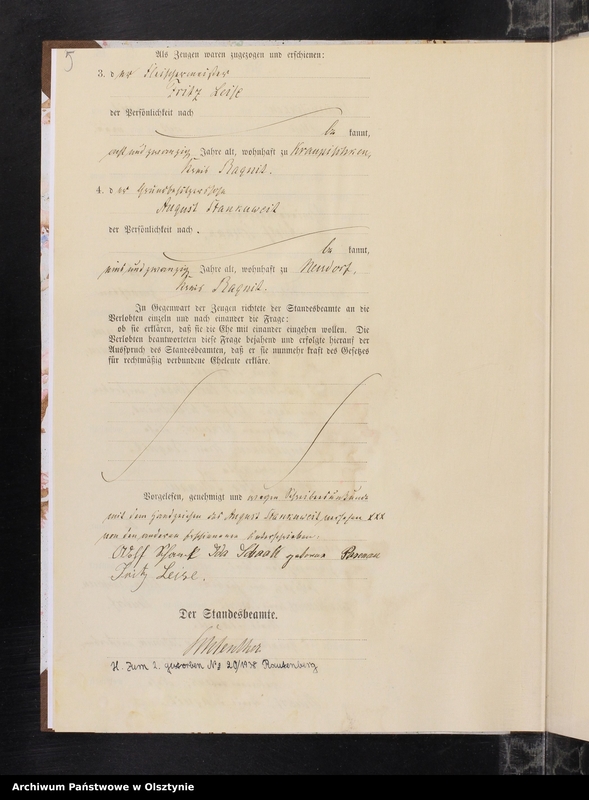 5
Als Zeugen waren zugezogen und erschienen:
3. der Fleischermeister
Fritz Leise
der Persönlichkeit nach
be kannt,
und zwanzig Jahre alt, wohnhaft zu Kraupischken,
Kreis Ragnit.
4. der Grundbesitzerssohn
August Stankuweit
der Persönlichkeit nach
be kannt,
und zwanzig Jahre alt, wohnhaft zu Neudorf,
Kreis Ragnit.
In Gegenwart der Zeugen richtete der Standesbeamte an die
Verlobten einzeln und nach einander die Frage:
ob sie erklären, daß sie die Ehe mit einander eingehen wollen. Die
Verlobten beantworteten diese Frage bejahend und erfolgte hierauf der
Ausspruch des Standesbeamten, daß er sie nunmehr kraft des Gesetzes
für rechtmäßig verbundene Eheleute erkläre.
Vorgelesen, genehmigt und wegen Schreibensunkunde
mit dem Handzeichen des August Stankuweit versehen XXX
von den anderen Erschienenen unterschrieben.
Adolf Schaak Ida Schaak geborene
Fritz Leise.
Der Standesbeamte.
H. zum 2. geworben No 20/1938 Rautenberg
Archiwum Państwowe w Olsztynie